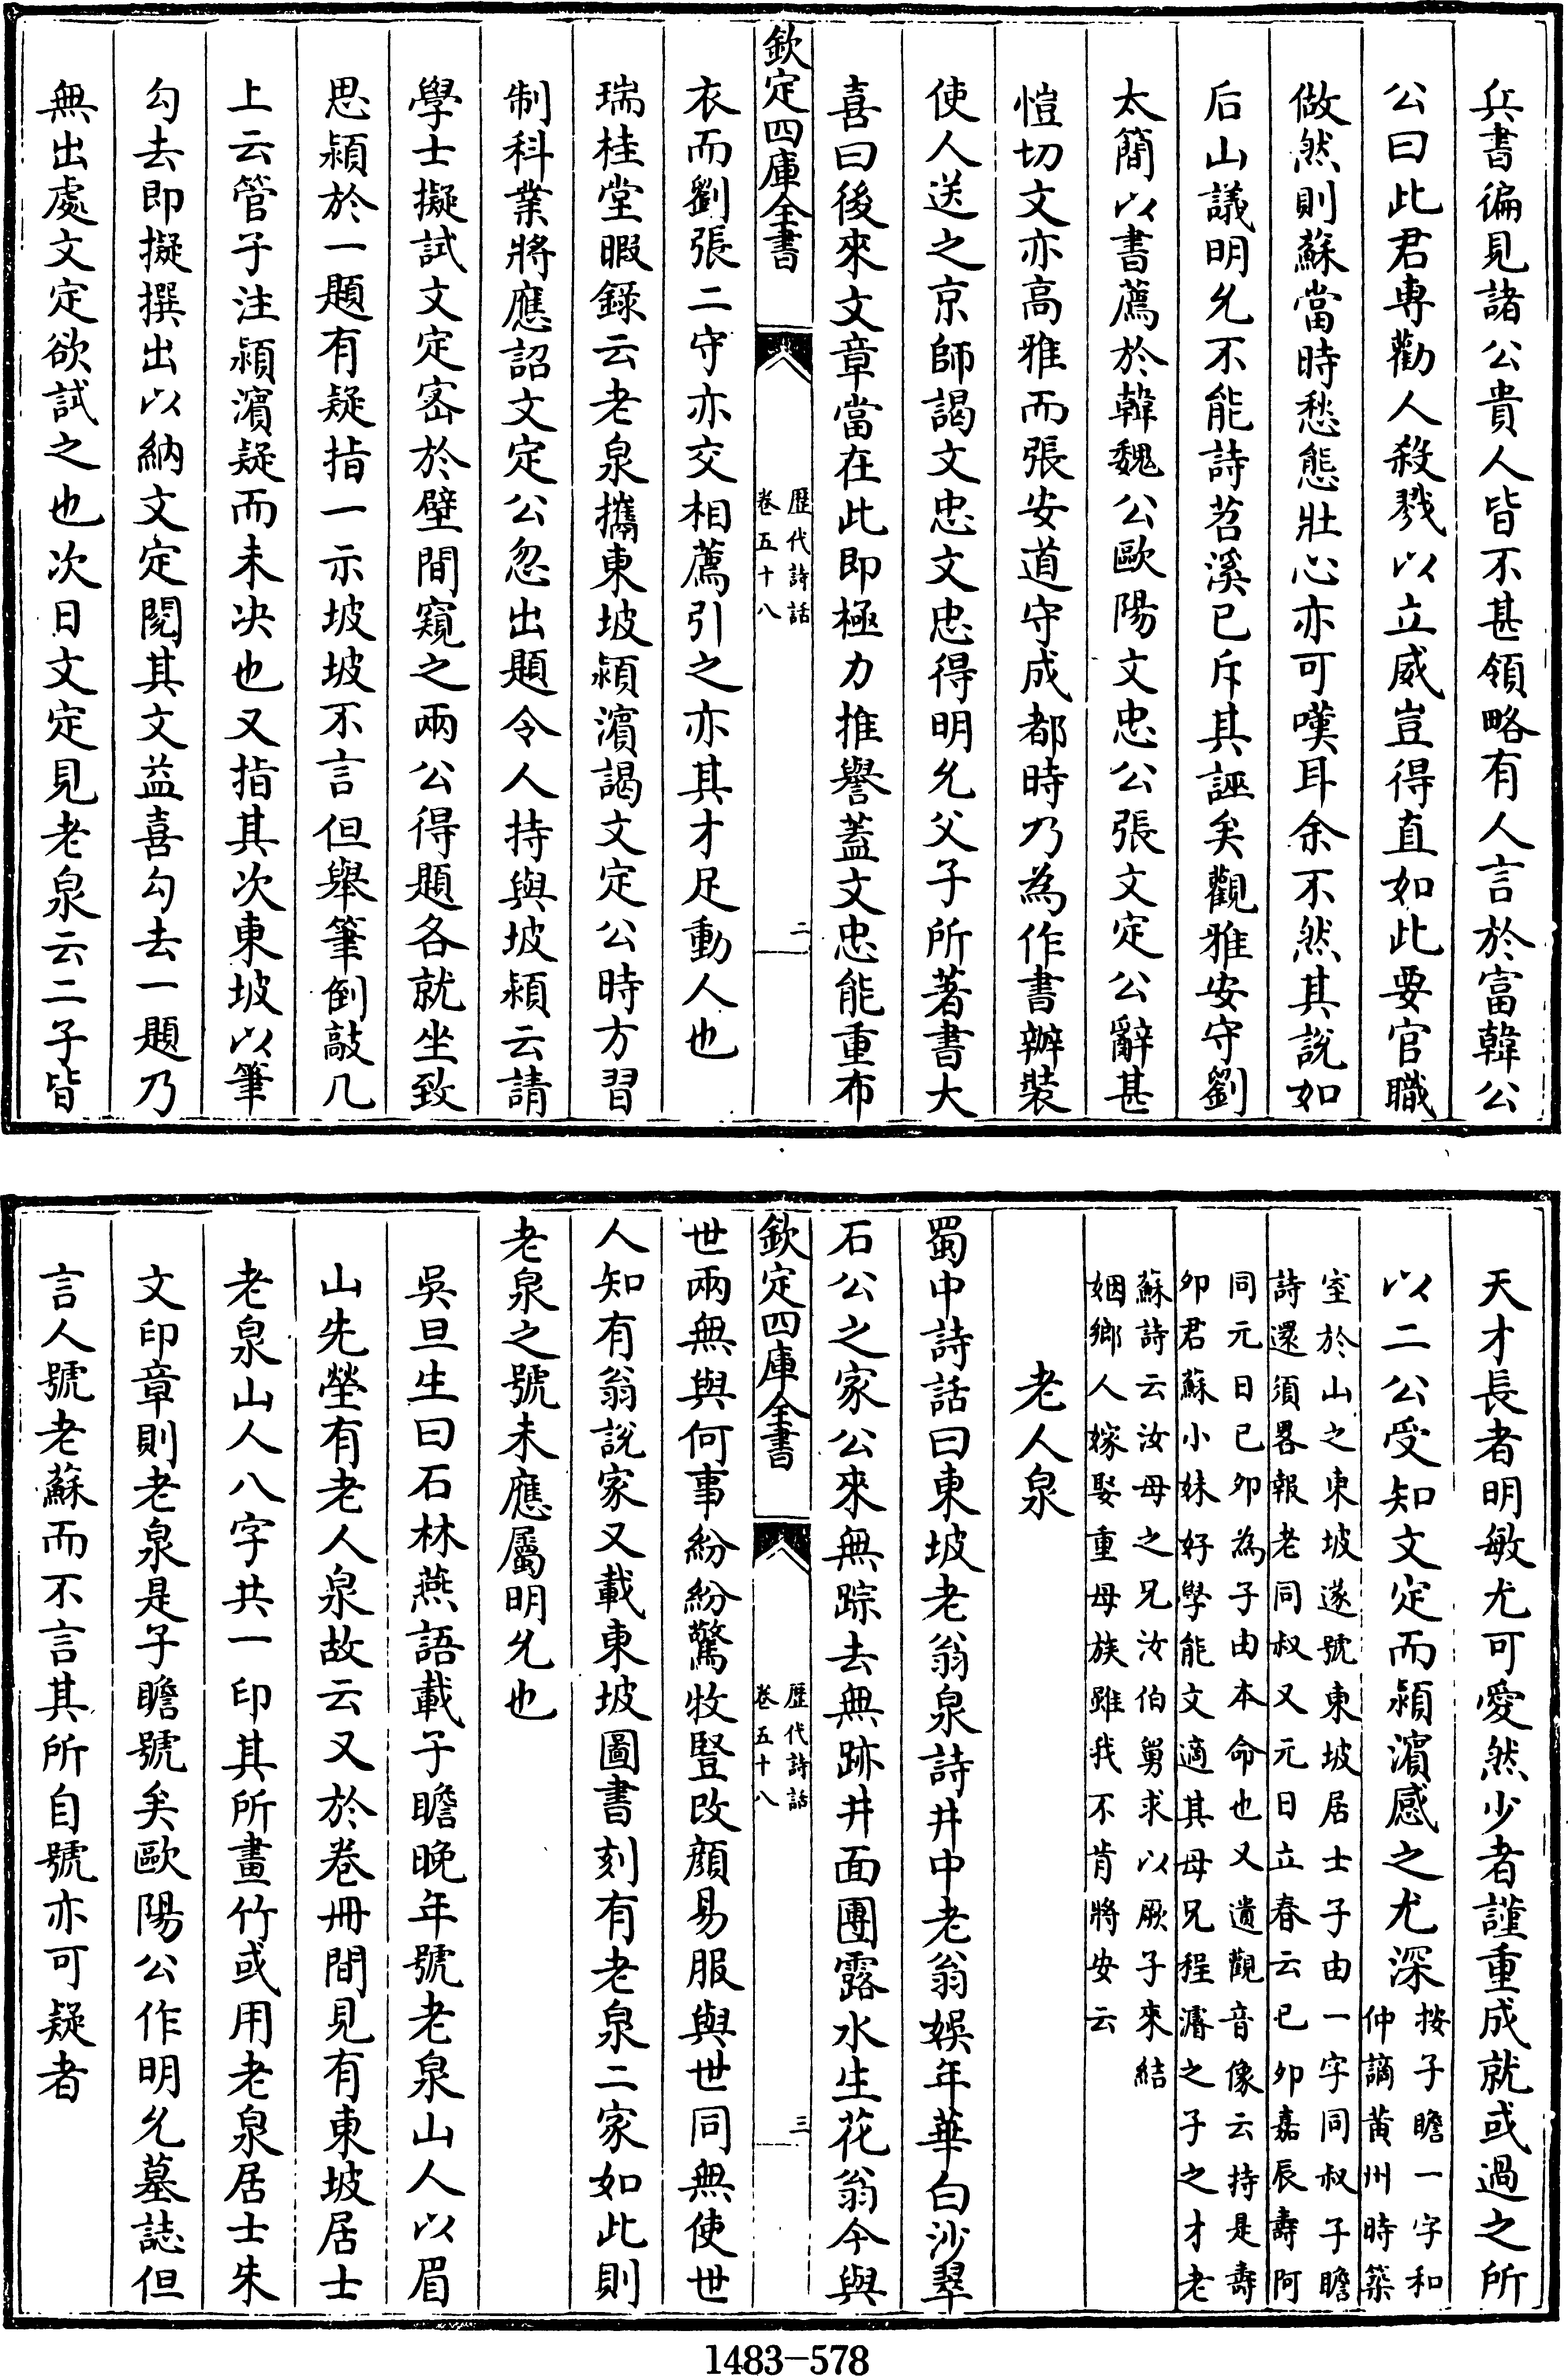 兵書偏見諸公貴人皆不甚領略有人言於富韓公
公曰此君專勸人殺戮以立威豈得直如此要官職
做然則蘇當時愁態壯心亦可嘆耳余不然其說如
后山議明允不能詩苕溪已斥其誣矣觀雅安守劉
太簡以書薦於韓魏公歐陽文忠公張文定公辭甚
愷切文亦高雅而張安道守成都時乃為作書辦裝
使人送之京師謁文忠文忠得明允父子所著書大
喜曰後來文章當在此即極力推譽蓋文忠能重布
欽定四庫全書
歷代詩話
卷五十八
二
衣而劉張二守亦交相薦引之亦其才足動人也
瑞桂堂暇録云老泉攜東坡潁濱謁文定公時方習
制科業將應詔文定公忽出題令人持與坡潁云請
學士擬試文定宻於壁間窺之兩公得題各就坐致
思潁於一題有疑指一示坡坡不言但舉筆倒敲几
上云管子注潁濱疑而未决也又指其次東坡以筆
勾去即擬撰出以納文定閱其文益喜勾去一題乃
無出處文定欲試之也次日文定見老泉云二子皆
天才長者明敏尤可愛然少者謹重成就或過之所
以二公受知文定而潁濱感之尤深
按子瞻一字和
仲謫黄州時築
室於山之東坡遂號東坡居士子由一字同叔子瞻
詩還須畧報老同叔又元日立春云已夘嘉辰壽阿
同元日已夘為子由本命也又遺觀音像云持是壽
夘君蘇小妹好學能文適其母兄程濬之子之才老
蘇詩云汝母之兄汝伯舅求以厥子來結
姻鄉人嫁娶重母族雖我不肯將安云
老人泉
蜀中詩話曰東坡老翁泉詩井中老翁娛年華白沙翠
石公之家公來無踪去無跡井面團露水生花翁今與
欽定四庫全書
歷代詩話
卷五十八
三
世兩無與何事紛紛驚牧豎改顔易服與世同無使世
人知有翁説家又載東坡圖書刻有老泉二家如此則
老泉之號未應屬明允也
吳旦生曰石林燕語載子瞻晚年號老泉山人以眉
山先塋有老人泉故云又於卷冊間見有東坡居士
老泉山人八字共一印其所畫竹或用老泉居士朱
文印章則老泉是子瞻號矣歐陽公作明允墓誌但
言人號老蘇而不言其所自號亦可疑者
1483-578